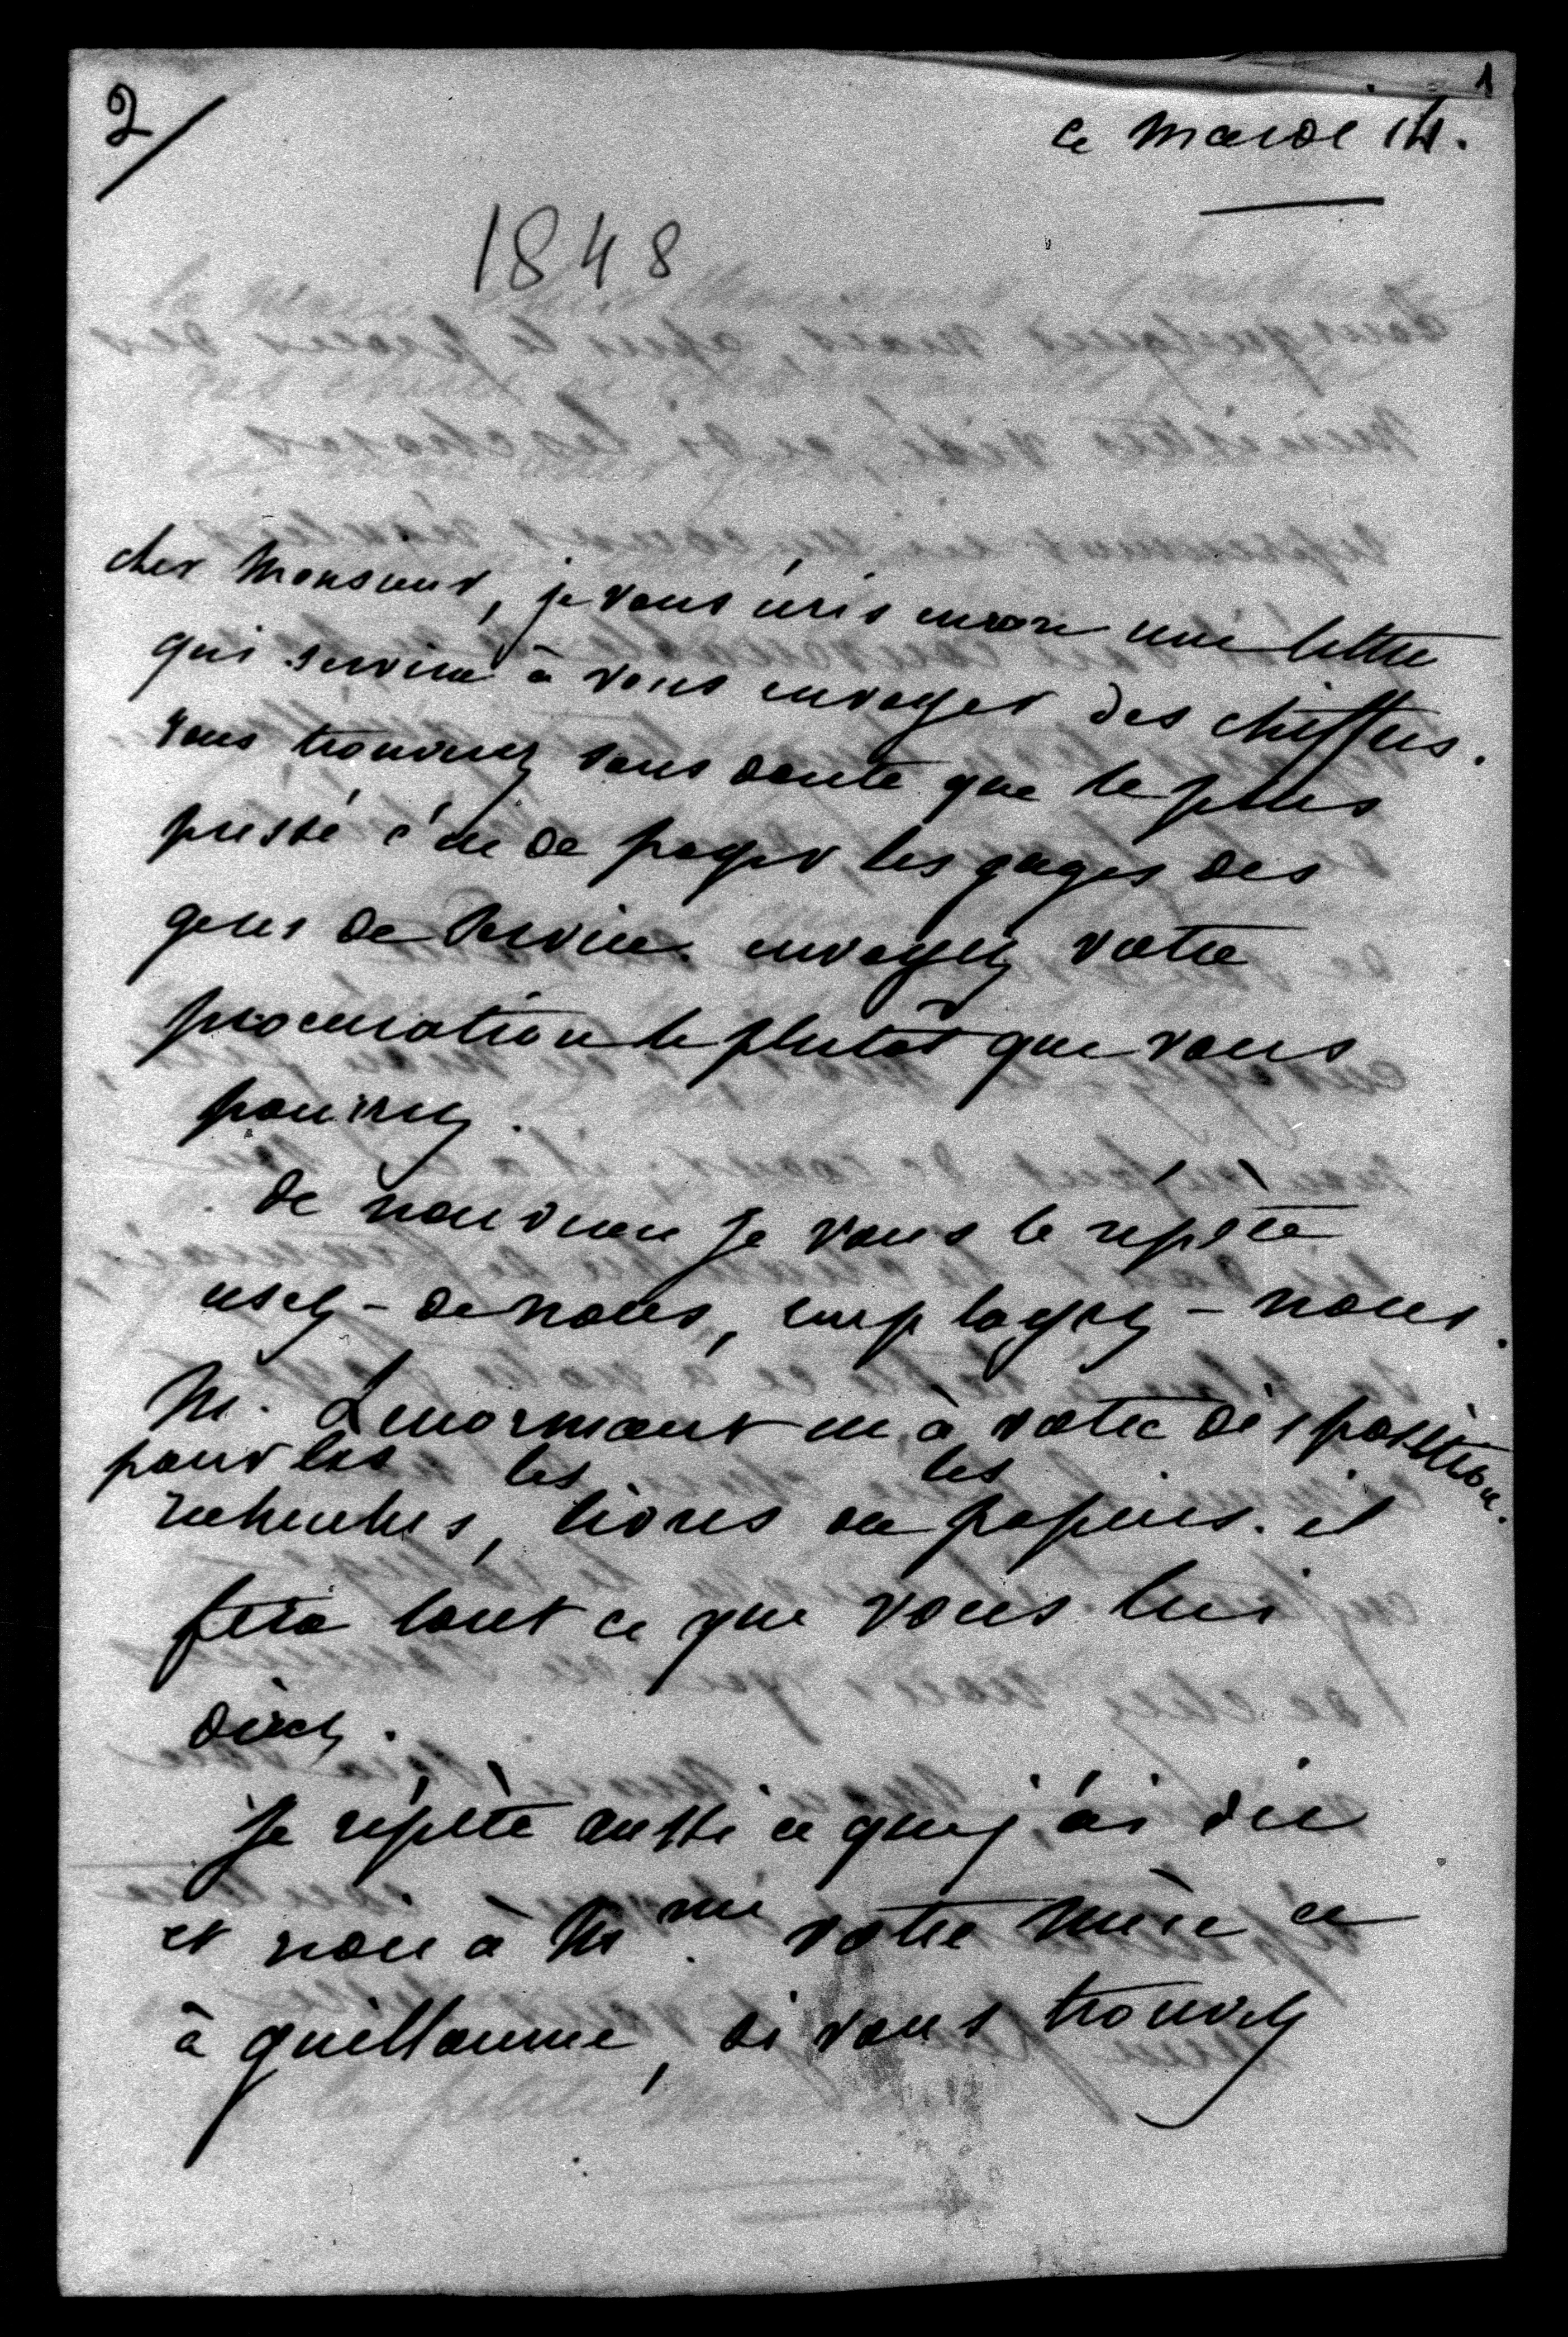 2/
1
ce mardi 14.
1848
cher Monsieur, je vous écris encore une lettre
qui servira à vous envoyer des chiffres.
vous trouverez sans doute que le plus
pressé c'est de payer les gages des
gens de service. envoyez votre
procuration le plutôt que vous
pourrez.
de nouveau je vous le répète
usez-de nous, employez-nous.
M. Lenormant est à votre disposition.
pour les les les
recherches, livres ou papiers. il
fera tout ce que vous lui
direz.
Je répète aussi ce que j'ai dit
et à Mme votre mère et
à guillaume, si vous trouvez